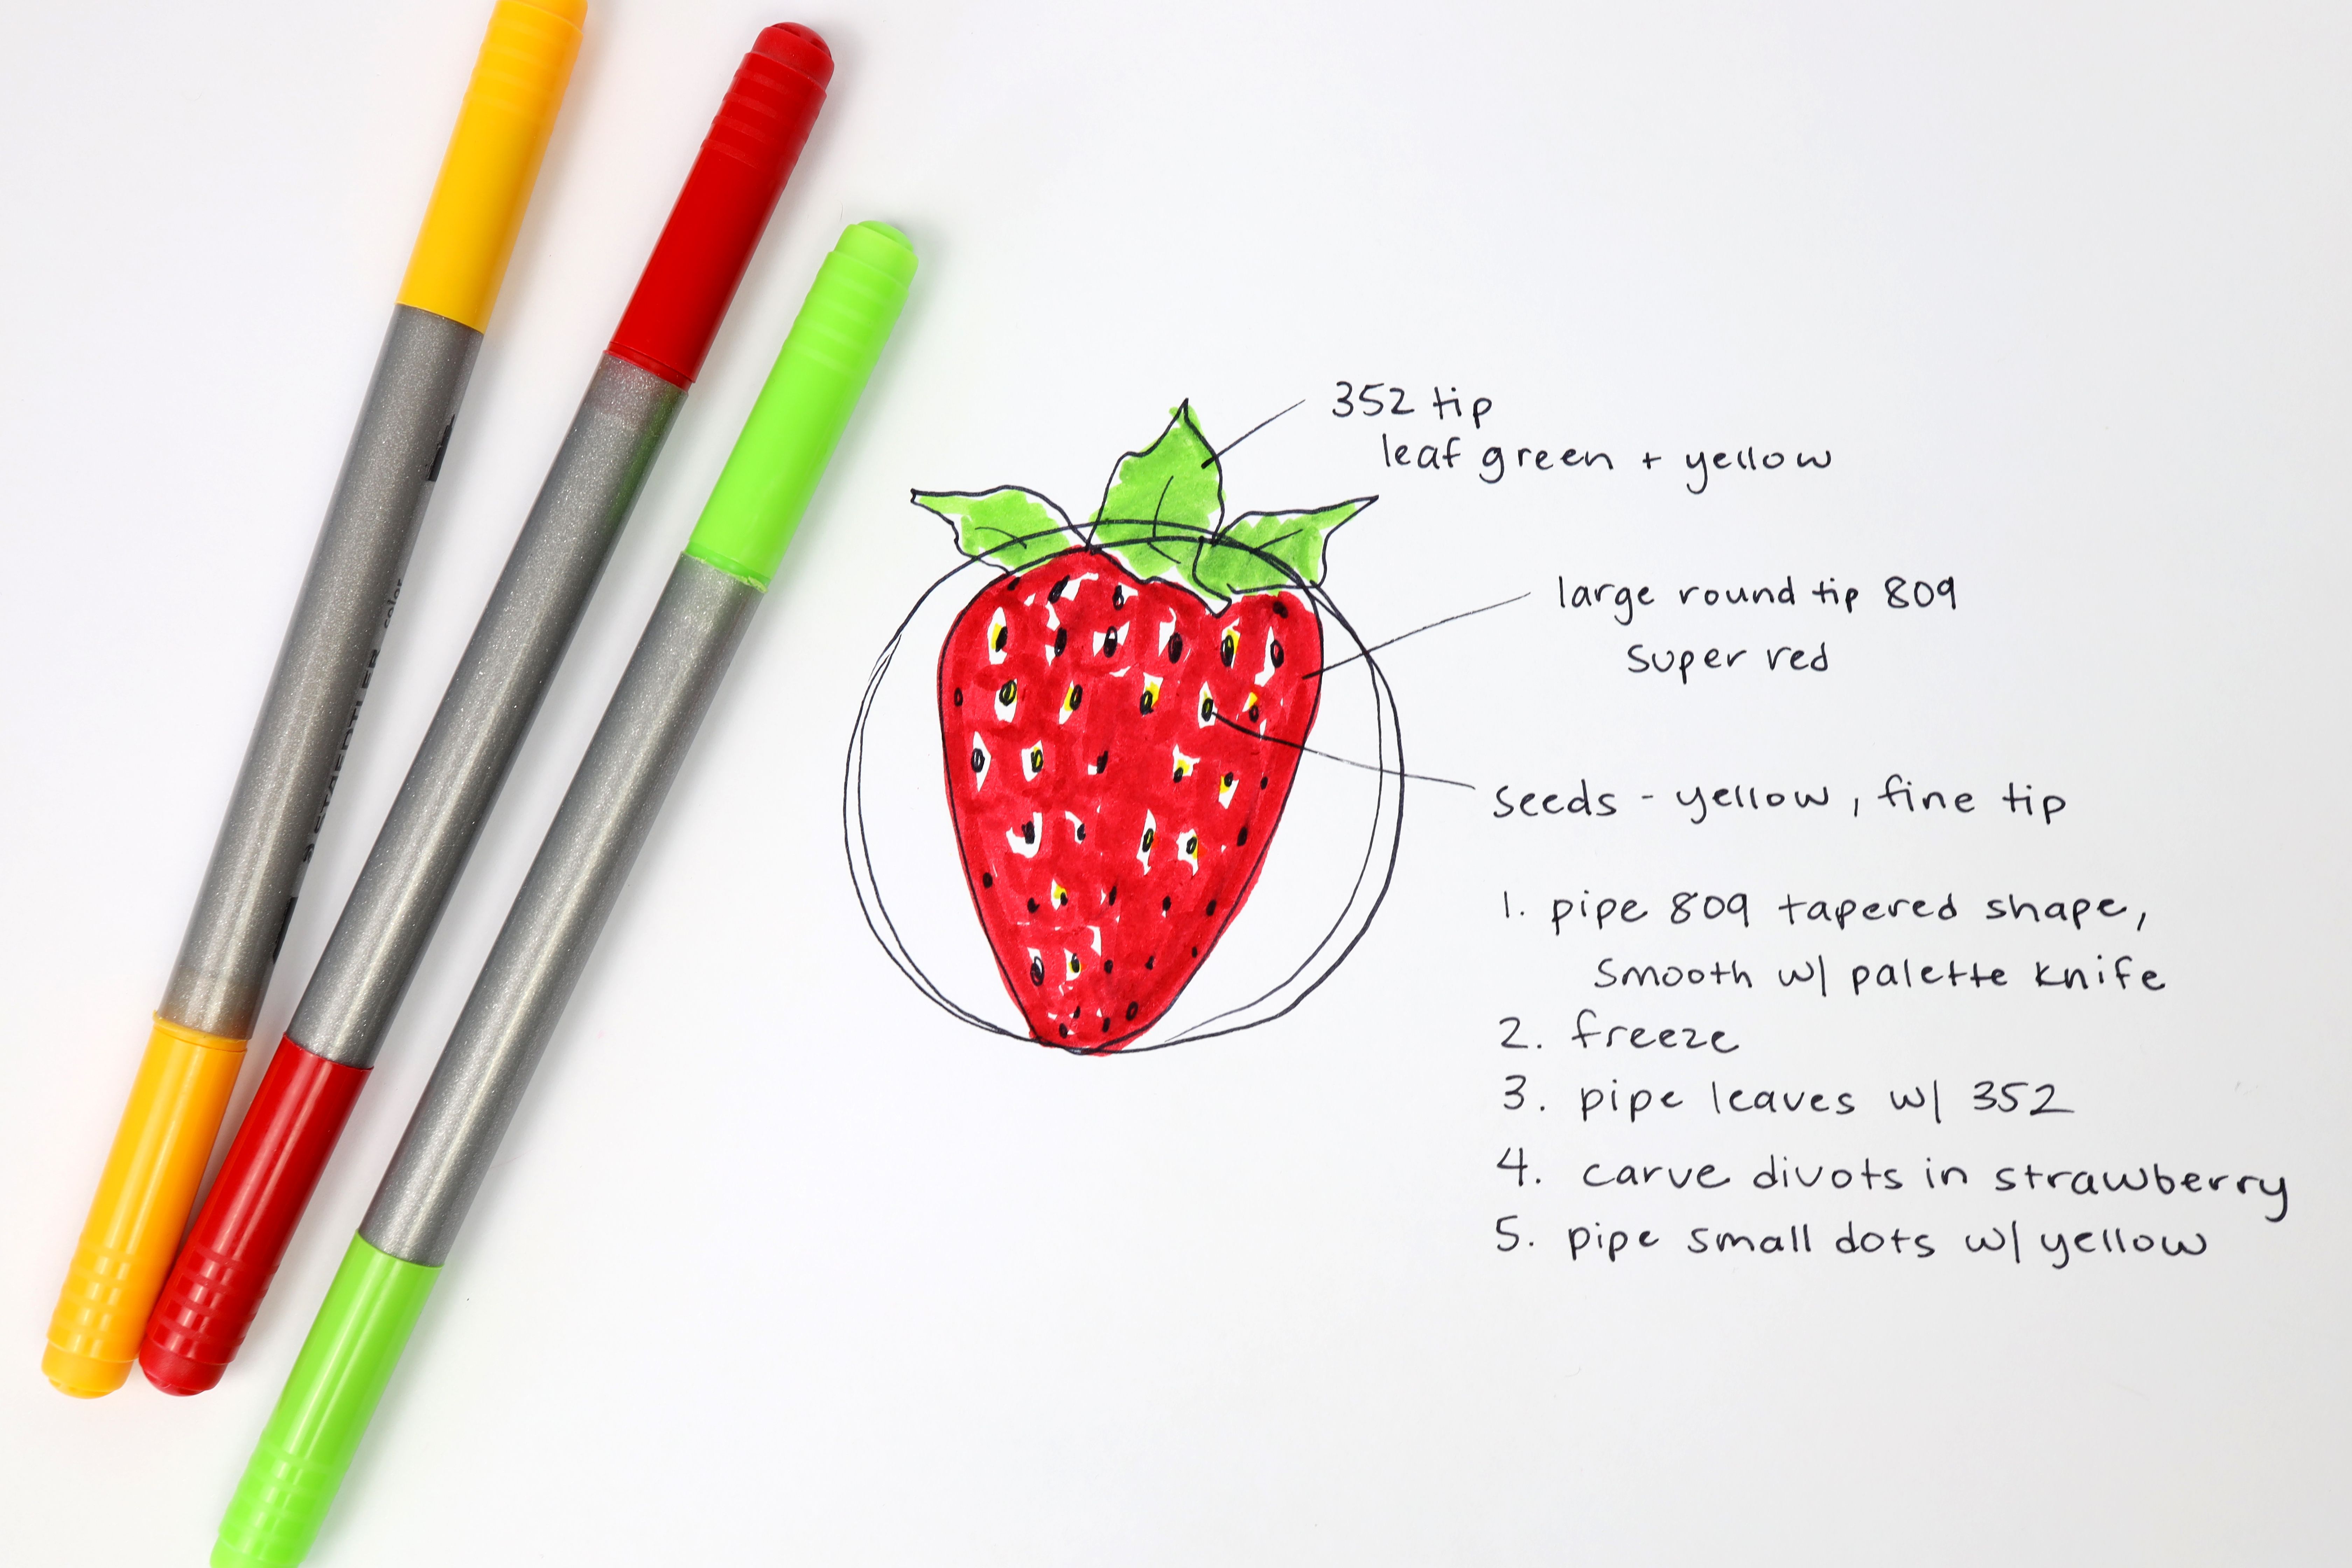 352 tip
leaf green + yellow
large round tip 809
super red
seeds - yellow, fine tip
1. pipe 809 tapered shape,
smooth w/ palette knife
2. freeze
3. pipe leaves w/ 352
4. carve divots in strawberry
5. pipe small dots w/ yellow
STAEDTLER color